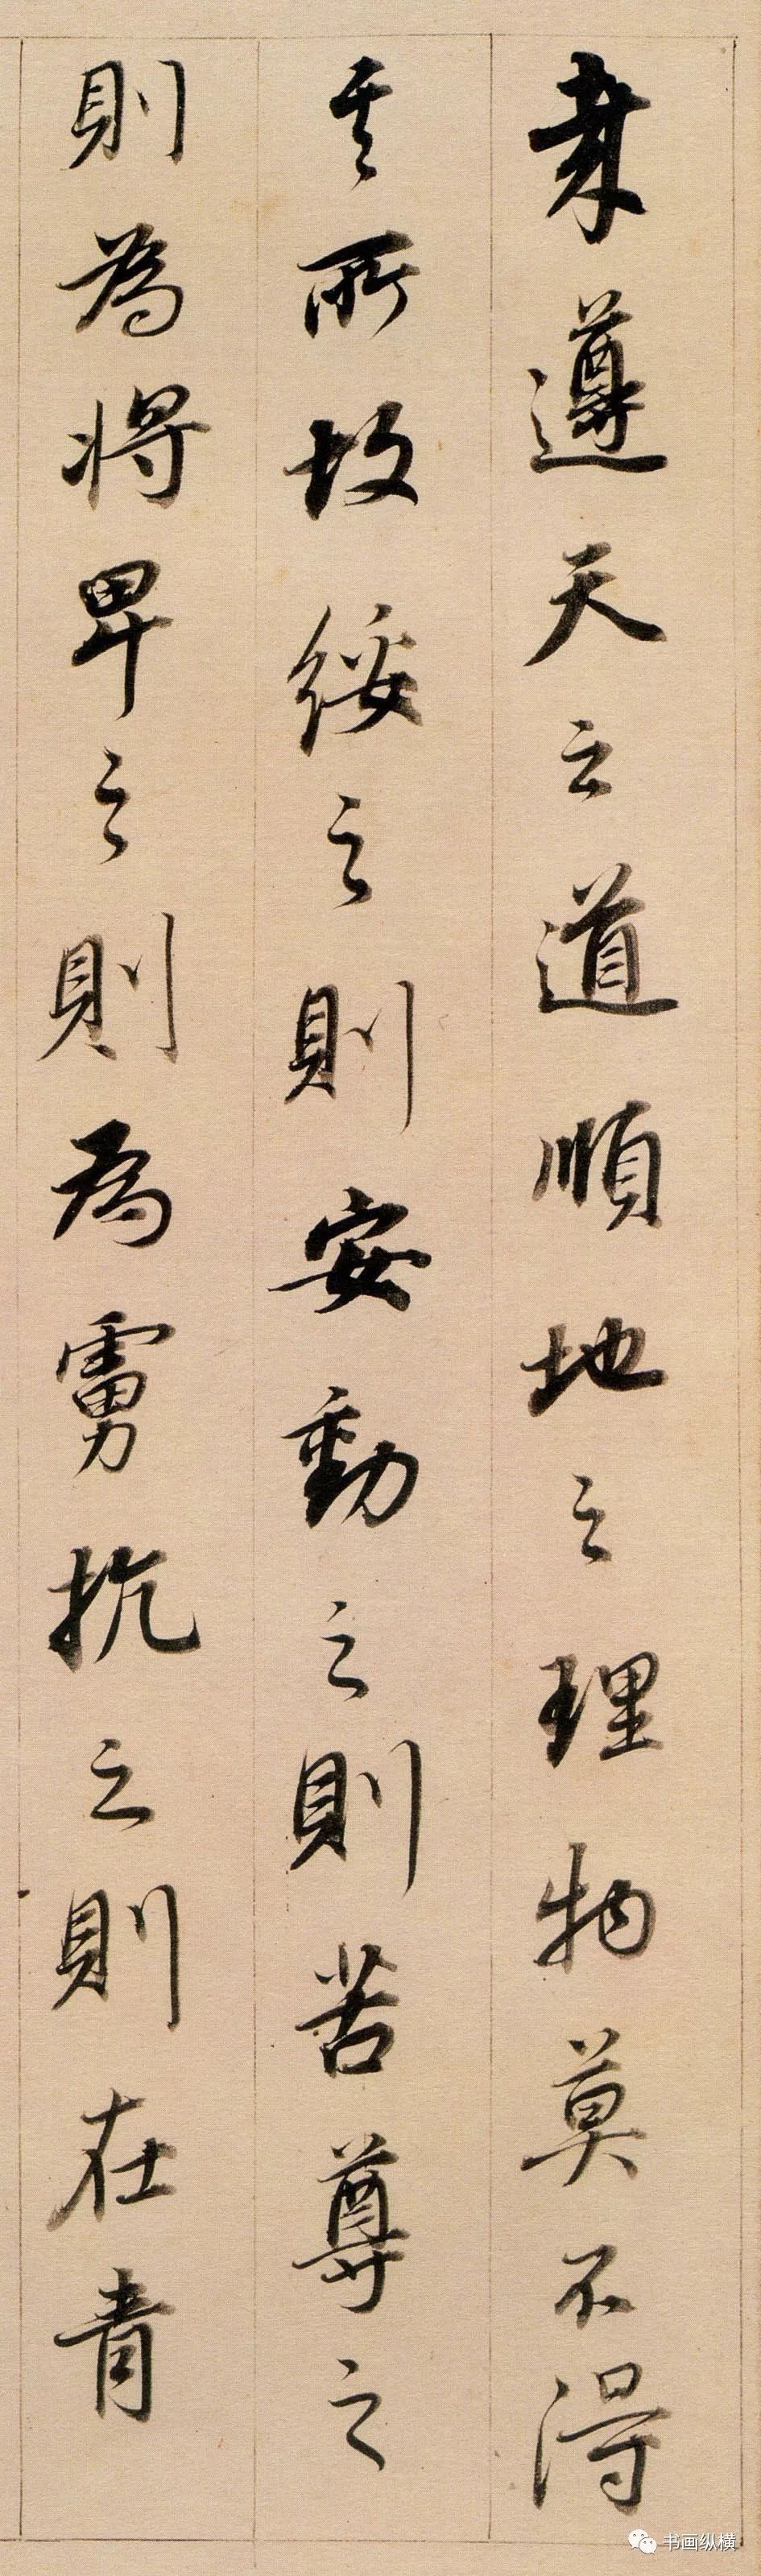 哉遵天之道順地之理物莫不得
其所故綏之則安動之則苦尊之
則為將卑之則為虜抗之則在青
书画纵横